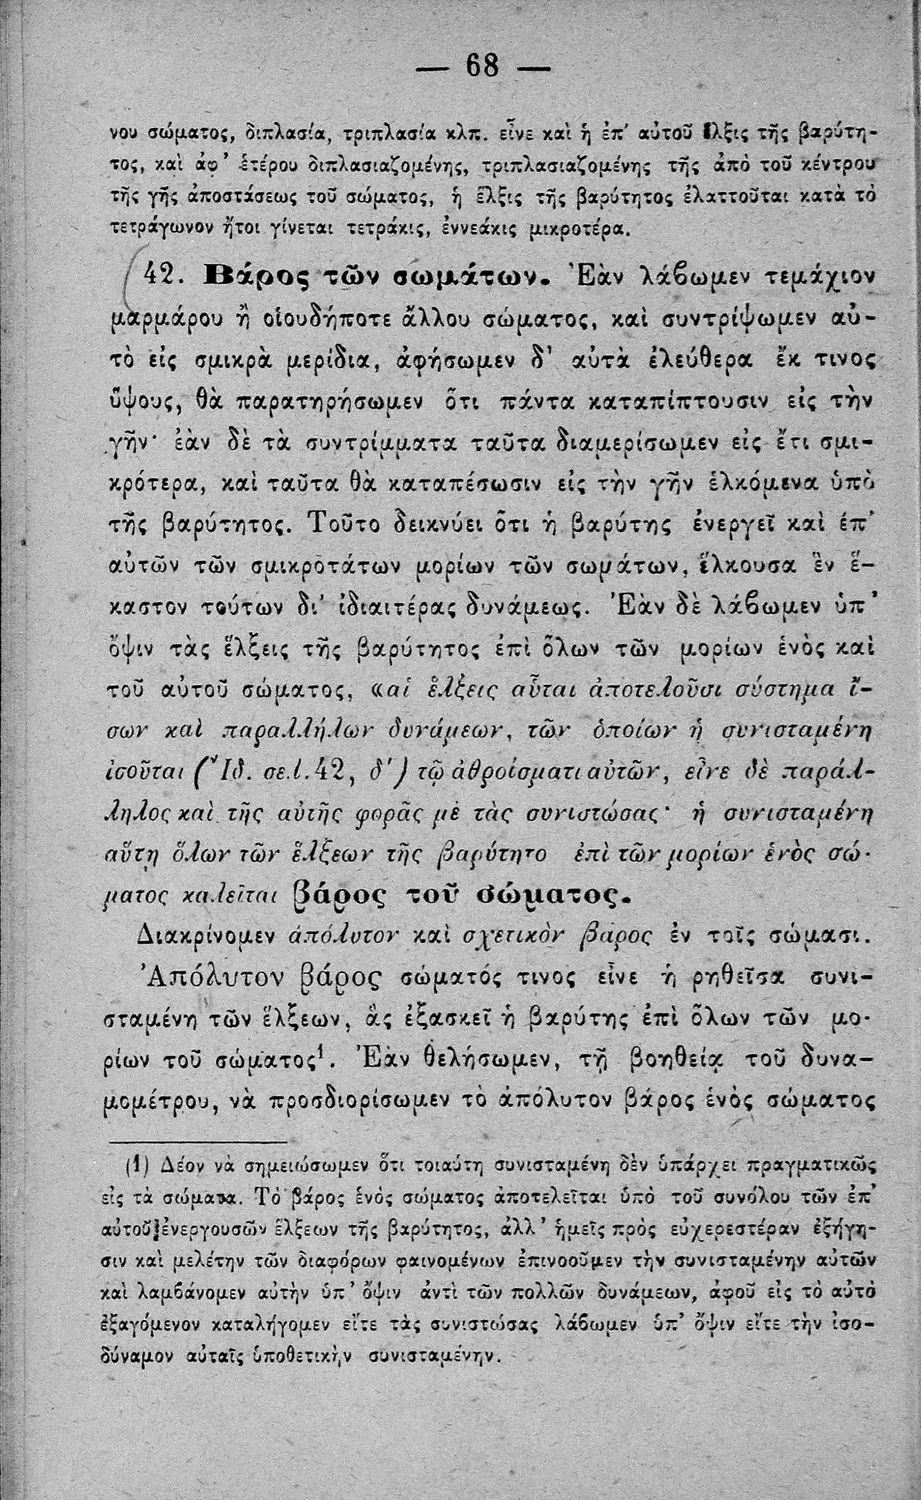 — 68 —
νου σώματος, διπλασία, τριπλασία κλπ. εἶνε καὶ ἡ ἐπ' αὐτοῦ ἕλξις τῆς βαρύτη-
τος, καὶ ἀφ' ἑτέρου διπλασιαζομένης, τριπλασιαζομένης τῆς ἀπὸ τοῦ κέντρου
τῆς γῆς ἀποστάσεως τοῦ σώματος, ἡ ἕλξις τῆς βαρύτητος ἐλαττοῦται κατὰ τὸ
τετράγωνον ἤτοι γίνεται τετράκις, ἐννεάκις μικροτέρα.
42. Βάρος τῶν σωμάτων. Ἐὰν λάβωμεν τεμάχιον
μαρμάρου ἢ οἱουδήποτε ἄλλου σώματος, καὶ συντρίψωμεν αὐ-
τὸ εἰς σμικρὰ μερίδια, ἀφήσωμεν δ' αὐτὰ ἐλεύθερα ἔκ τινος
ὕψους, θὰ παρατηρήσωμεν ὅτι πάντα καταπίπτουσιν εἰς τὴν
γῆν· ἐὰν δὲ τὰ συντρίμματα ταῦτα διαμερίσωμεν εἰς ἔτι σμι-
κρότερα, καὶ ταῦτα θὰ καταπέσωσιν εἰς τὴν γῆν ἑλκόμενα ὑπὸ
τῆς βαρύτητος. Τοῦτο δεικνύει ὅτι ἡ βαρύτης ἐνεργεῖ καὶ ἐπ'
αὐτῶν τῶν σμικροτάτων μορίων τῶν σωμάτων, ἕλκουσα ἓν ἕ-
καστον τούτων δι' ἰδιαιτέρας δυνάμεως. Ἐὰν δὲ λάβωμεν ὑπ'
ὄψιν τὰς ἕλξεις τῆς βαρύτητος ἐπὶ ὅλων τῶν μορίων ἑνὸς καὶ
τοῦ αὐτοῦ σώματος, «αἱ ἕλξεις αὗται ἀποτελοῦσι σύστημα ἴ-
σων καὶ παραλλήλων δυνάμεων, τῶν ὁποίων ἡ συνισταμένη
ἰσοῦται (Ἰδ. σελ. 42, δ') τῷ ἀθροίσματι αὐτῶν, εἶνε δὲ παράλ-
ληλος καὶ τῆς αὐτῆς φορᾶς μὲ τὰς συνιστώσας· ἡ συνισταμένη
αὕτη ὅλων τῶν ἕλξεων τῆς βαρύτητο ἐπὶ τῶν μορίων ἑνὸς σώ-
ματος καλεῖται βάρος τοῦ σώματος.
Διακρίνομεν ἀπόλυτον καὶ σχετικὸν βάρος ἐν τοῖς σώμασι.
Ἀπόλυτον βάρος σώματός τινος εἶνε ἡ ρηθεῖσα συνι-
σταμένη τῶν ἕλξεων, ἃς ἐξασκεῖ ἡ βαρύτης ἐπὶ ὅλων τῶν μο-
ρίων τοῦ σώματος¹. Ἐὰν θελήσωμεν, τῇ βοηθείᾳ τοῦ δυνα-
μομέτρου, νὰ προσδιορίσωμεν τὸ ἀπόλυτον βάρος ἑνὸς σώματος
(1) Δέον νὰ σημειώσωμεν ὅτι τοιαύτη συνισταμένη δὲν ὑπάρχει πραγματικῶς
εἰς τὰ σώματα. Τὸ βάρος ἑνὸς σώματος ἀποτελεῖται ὑπὸ τοῦ συνόλου τῶν ἐπ'
αὐτοῦ ἐνεργουσῶν ἕλξεων τῆς βαρύτητος, ἀλλ' ἡμεῖς πρὸς εὐχερεστέραν ἐξήγη-
σιν καὶ μελέτην τῶν διαφόρων φαινομένων ἐπινοοῦμεν τὴν συνισταμένην αὐτῶν
καὶ λαμβάνομεν αὐτὴν ὑπ' ὄψιν ἀντὶ τῶν πολλῶν δυνάμεων, ἀφοῦ εἰς τὸ αὐτὸ
ἐξαγόμενον καταλήγομεν εἴτε τὰς συνιστώσας λάβωμεν ὑπ' ὄψιν εἴτε τὴν ἰσο-
δύναμον αὐταῖς ὑποθετικὴν συνισταμένην.